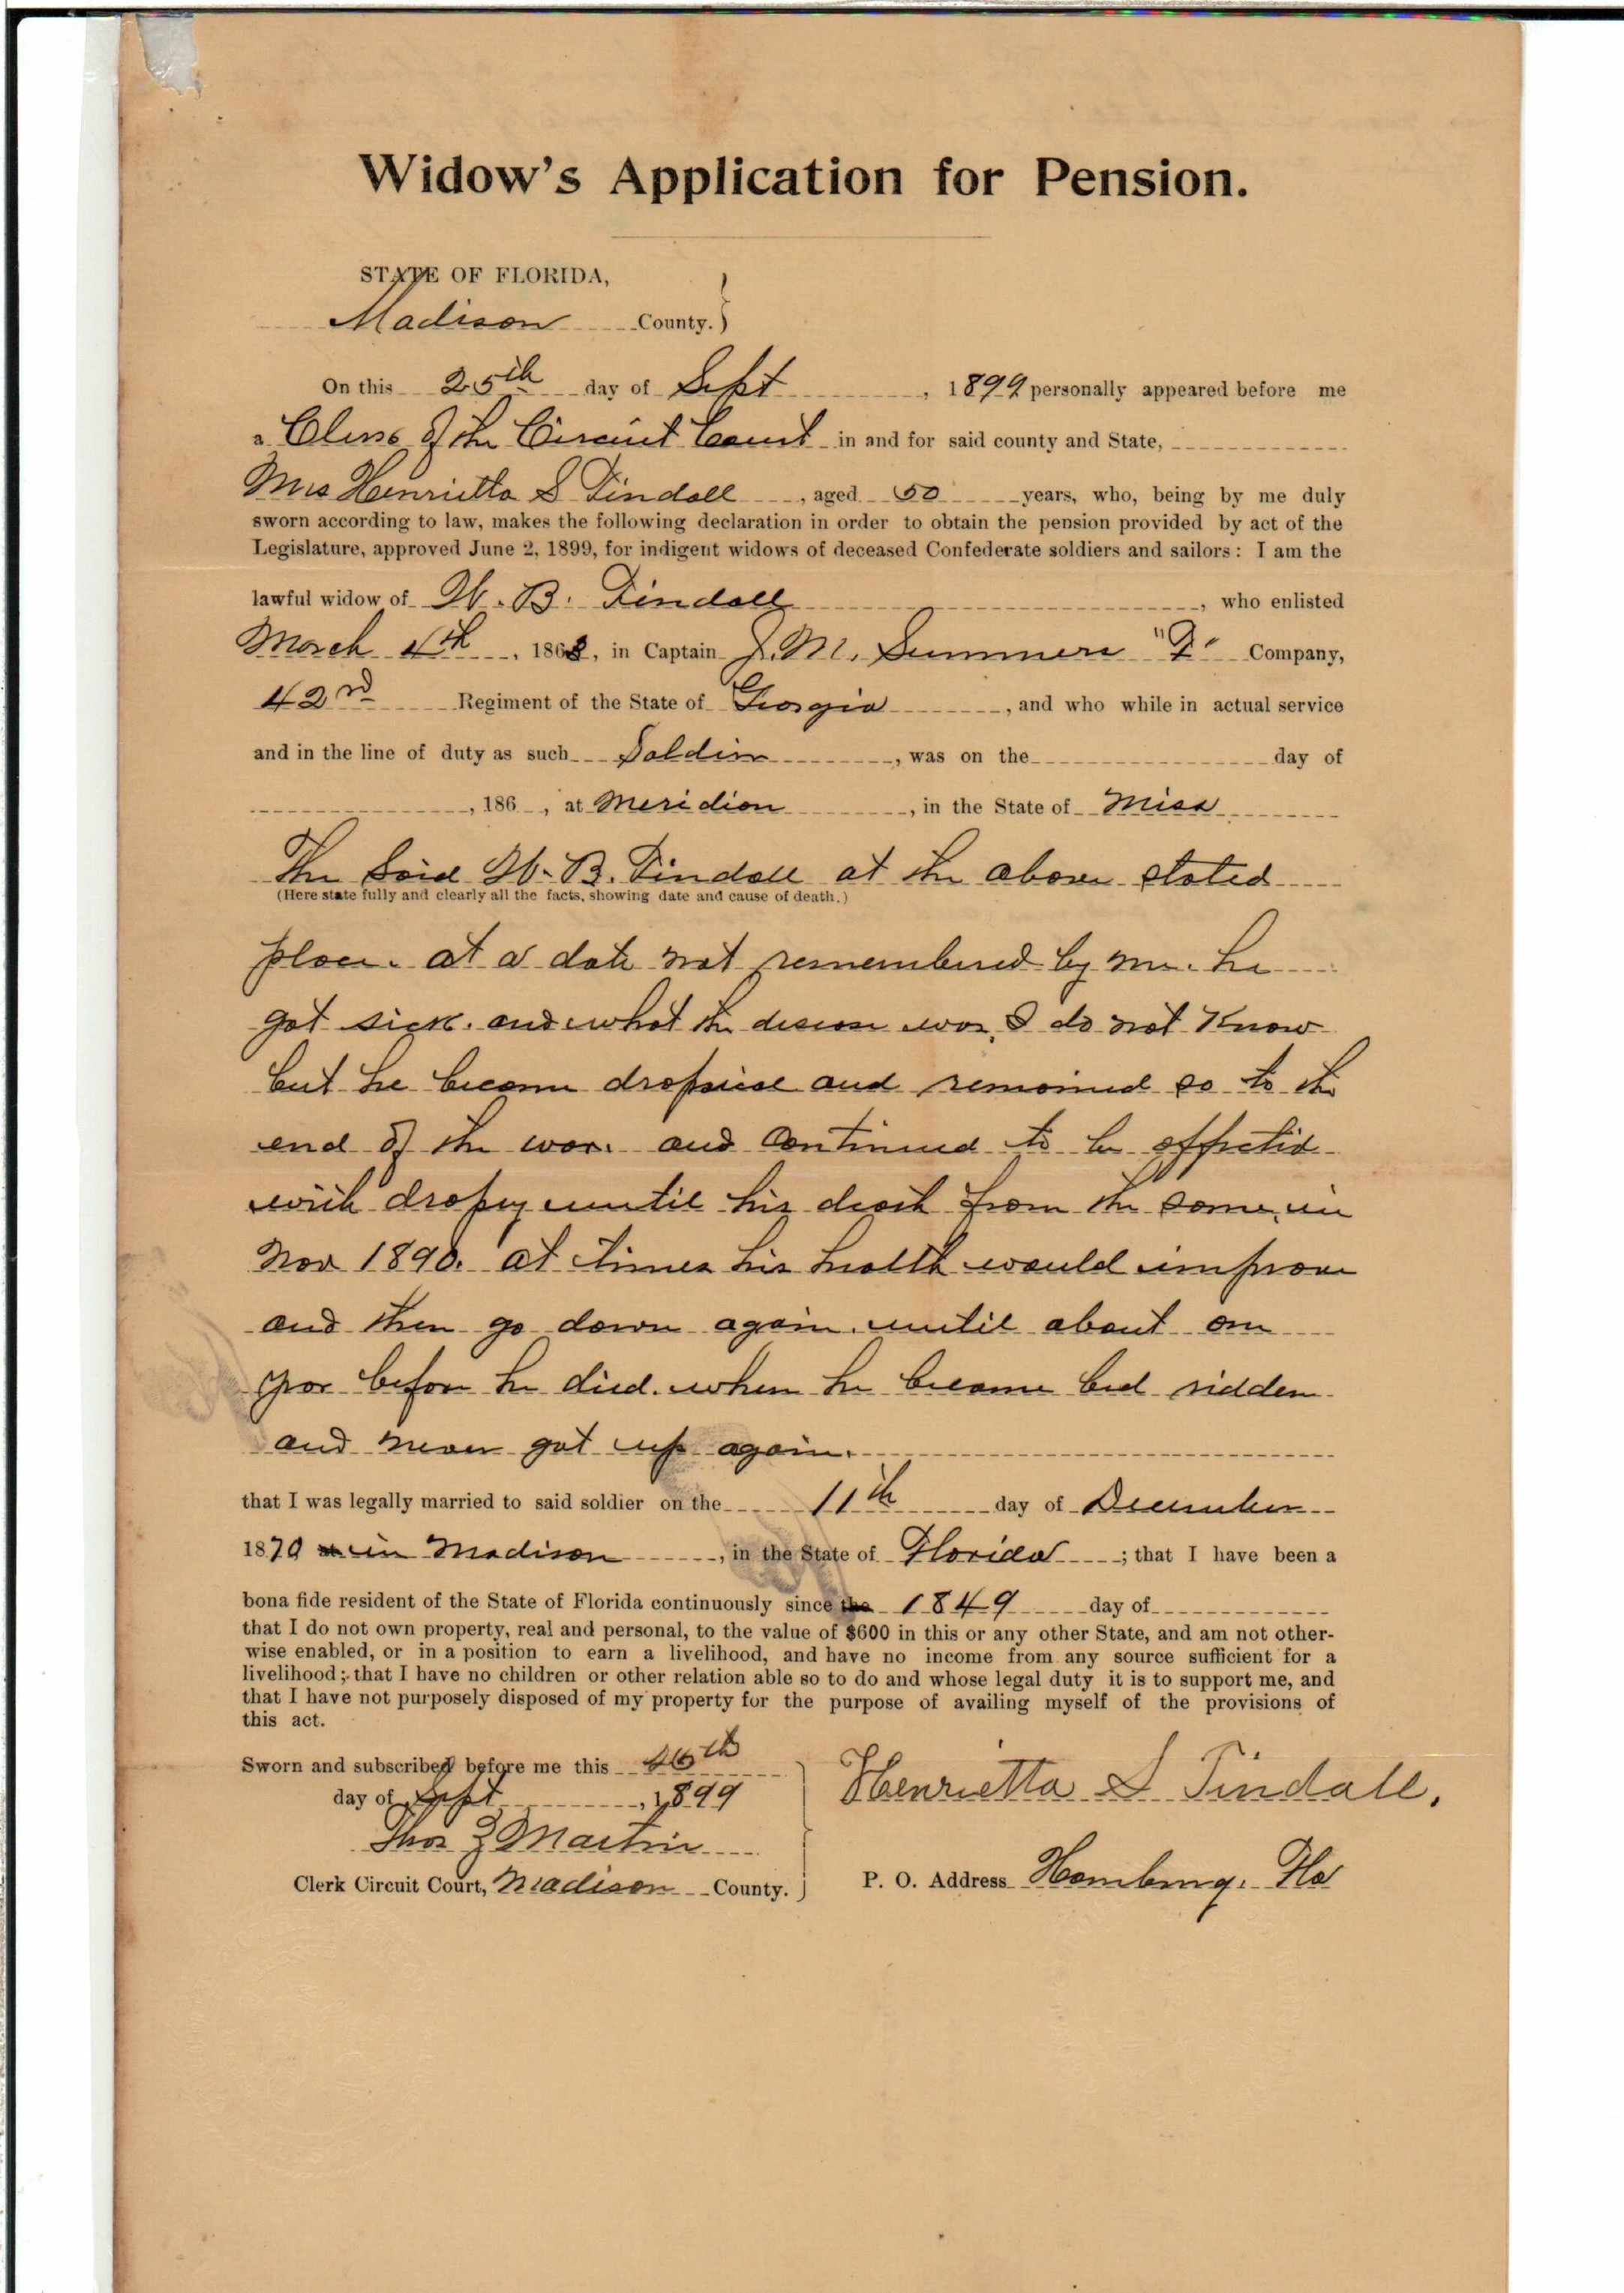 Widow's Application for Pension.
STATE OF FLORIDA,
Madison County.
On this 25th day of Sept, 1899 personally appeared before me
a Clerk of the Circuit Court in and for said county and State,
Mrs Henrietta S Tindall, aged 50 years, who, being by me duly
sworn according to law, makes the following declaration in order to obtain the pension provided by act of the
Legislature, approved June 2, 1899, for indigent widows of deceased Confederate soldiers and sailors: I am the
lawful widow of W. B. Tindall, who enlisted
March 4th, 1862, in Captain J. M. Summers Company,
42nd Regiment of the State of Georgia, and who while in actual service
and in the line of duty as such Soldier, was on the day of
, 186 , at Meridian, in the State of Miss
The Said W. B. Tindall at the above stated
(Here state fully and clearly all the facts, showing date and cause of death.)
place. at a date not remembered by me. he
got sick. and what the disease was, I do not Know
but he became dropsical and remained so to the
end of the war. and Continued to be affected
with dropsy until his death from the same, in
Nov 1890. at times his health would improve
and then go down again. until about one
year before he died. when he became bed ridden
and never got up again.
that I was legally married to said soldier on the 11th day of December
1870 at in Madison, in the State of Florida; that I have been a
bona fide resident of the State of Florida continuously since the 1849 day of
that I do not own property, real and personal, to the value of $600 in this or any other State, and am not other-
wise enabled, or in a position to earn a livelihood, and have no income from any source sufficient for a
livelihood; that I have no children or other relation able so to do and whose legal duty it is to support me, and
that I have not purposely disposed of my property for the purpose of availing myself of the provisions of
this act.
Sworn and subscribed before me this
day of Sept, 1899
Thos Martin
Clerk Circuit Court, Madison County.
Henrietta S Tindall.
P. O. Address Hamburg. Fla